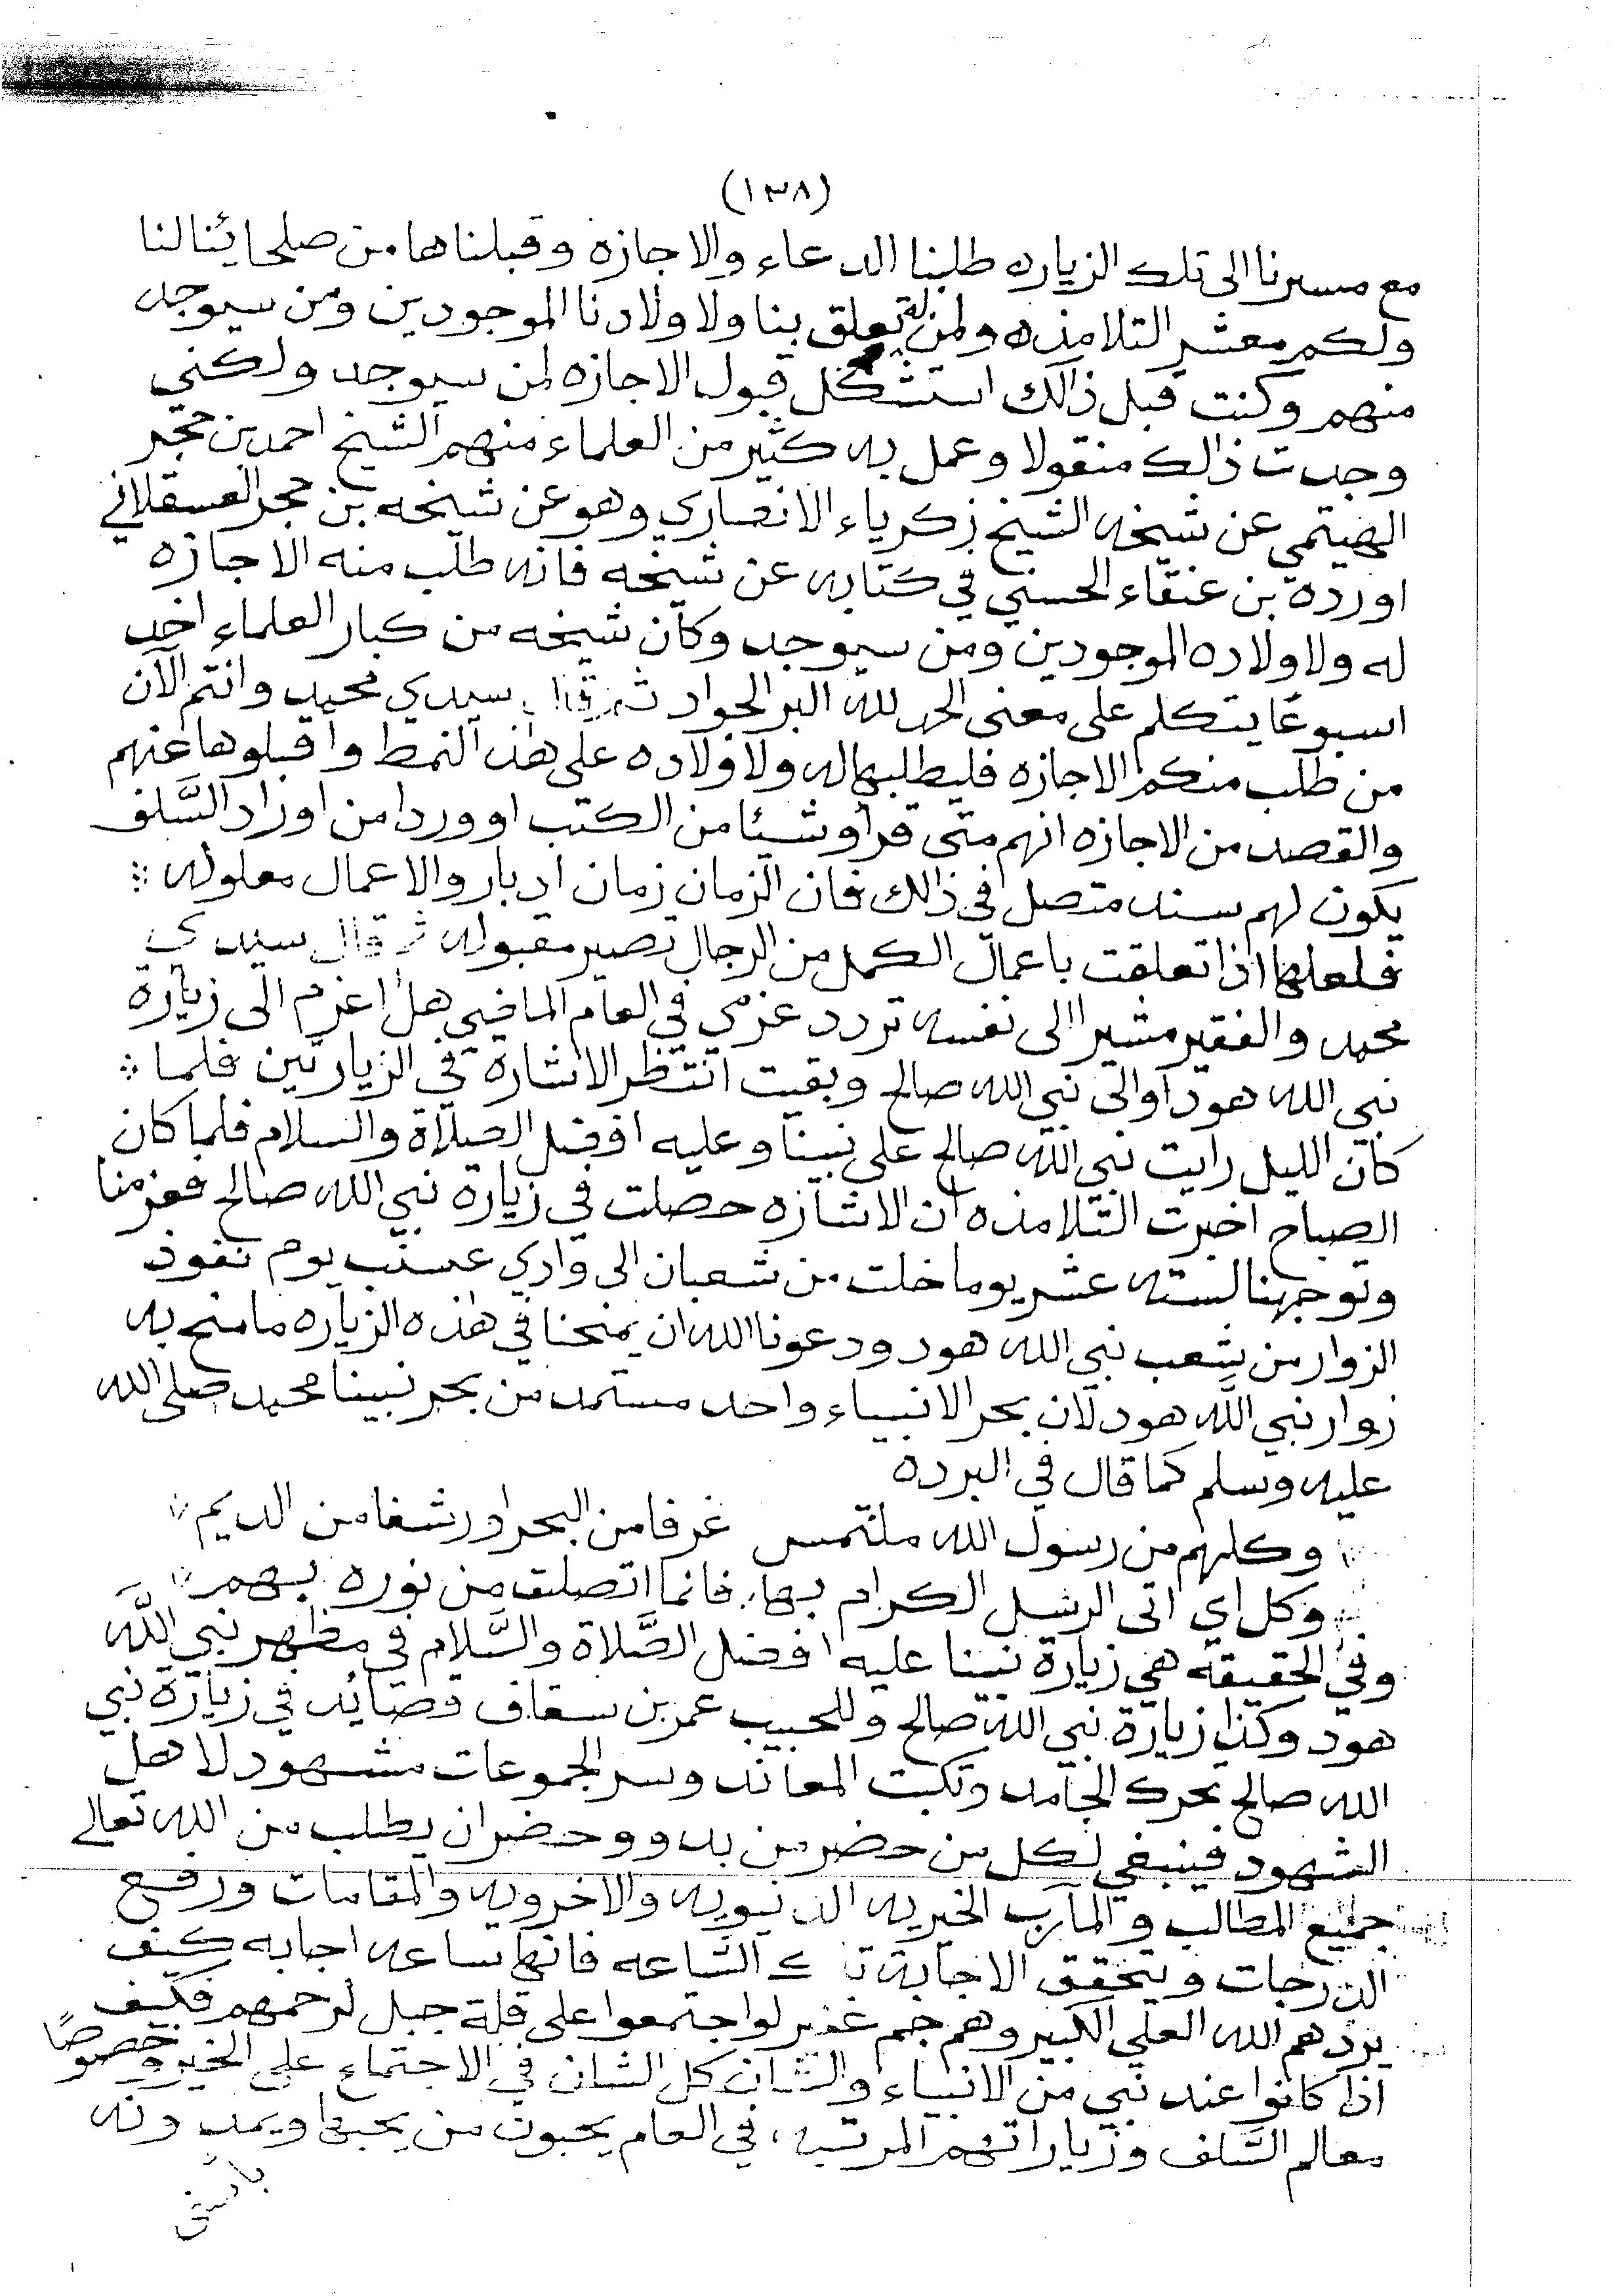 (١٣٨)
مع مسيرنا الى تلك الزياره طلبنا الدعاء والاجازه وقبلناها من صلحائنا لنا
ولكم معشر التلامذه ولمن له تعلق بنا ولاولادنا الموجودين ومن سيوجد
منهم وكنت قبل ذالك استشكل قبول الاجازه لمن سيوجد ولكني
وجدت ذالك منقولا وعمل به كثير من العلماء منهم الشيخ احمد بن حجر
الهيتمي عن شيخه الشيخ زكرياء الانصاري وهو عن شيخه بن حجر العسقلاني
اورده بن عنقاء الحسني في كتابه عن شيخه فانه طلب منه الاجازه
له ولاولاده الموجودين ومن سيوجد وكان شيخه من كبار العلماء اخذ
اسبوعًا يتكلم على معنى الحمد لله البر الجواد ثم قال سيدي محمد وانتم الآن
من طلب منكم الاجازه فليطلبها له ولاولاده على هذا النمط واقبلوها عنهم
والقصد من الاجازه انهم متى قرأو شيئا من الكتب او وردا من اوراد السَّلف
يكون لهم سند متصل في ذالك فان الزمان زمان ادبار والاعمال معلوله
فلعلها اذا تعلقت باعمال الكمل من الرجال تصير مقبوله ثم قال سيدي
محمد والفقير مشيرا الى نفسه تردد عزمي في العام الماضي هل اعزم الى زيارة
نبي الله هود او الى نبي الله صالح وبقيت انتظر الاشارة في الزيارتين فلما
كان الليل رايت نبي الله صالح على نبينا وعليه افضل الصلاة والسلام فلما كان
الصباح اخبرت التلامذه ان الاشاره حصلت في زيارة نبي الله صالح فعزمنا
وتوجهنا لسته عشر يوما خلت من شعبان الى وادي عسنب يوم نفوذ
الزوار من شعب نبي الله هود ودعونا الله ان يمنحنا في هذه الزياره ما منح به
زوار نبي الله هود لان بحر الانبياء واحد مستمد من بحر نبينا محمد صلى الله
عليه وسلم كما قال في البرده
وكلهم من رسول الله ملتمس غرفا من البحر او رشفا من الديم
وكل اي اتى الرسل الكرام بها فانما اتصلت من نوره بهم
وفي الحقيقة هي زيارة نبينا عليه افضل الصَّلاة والسَّلام في مظهر نبي اللَّه
هود وكذا زيارة نبي الله صالح وللحبيب عمر بن سقاف قصائد في زيارة نبي
الله صالح تحرك الجامد وتكبت المعاند وسر الجموعات مشهود لاهل
الشهود فينبغي لكل من حضر من بدو وحضر ان يطلب من الله تعالى
جميع المطالب والمآرب الخيريه الدنيويه والاخرويه والمقامات ورفع
الدرجات ويتحقق الاجابة السَّاعه فانها ساعه اجابه كيف
يردهم الله العلي الكبير وهم جم غفير لو اجتمعوا على قلة جبل لرحمهم فكيف
اذا كانوا عند نبي من الانبياء والشان كل الشان في الاجتماع على الخير وخصوصًا
معالم السَّلف وزياراتهم المرتبه في العام يحبون من يحبها ويمدونه